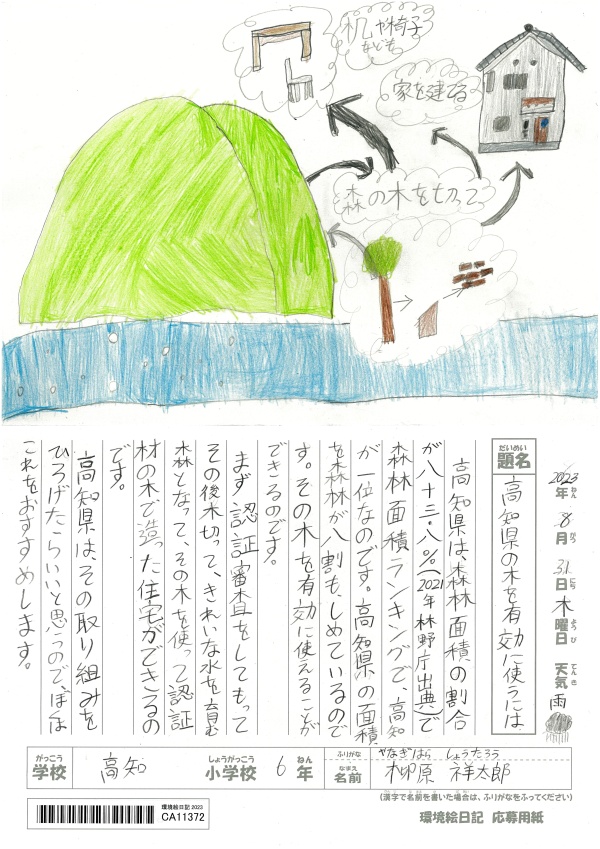 机や椅子
なども
家を建てる
森の木を切って
2023年 8月 31日 木曜日 天気 雨
ねん がつ にち ようび てんき
だいめい
題名
高知県の木を有効に使うには
高知県は、森林面積の割合
が八十三・八%(2021年林野庁出典)で
森林面積ランキングで、高知
が一位なのです。高知県の面積
を森林が八割も、しめているので
す。その木を有効に使えることが
できるのです。
まず認証審査をしてもって
その後木切って、きれいな水を育む
森となって、その木を使って認証
材の木で造った住宅ができるの
です。
高知県は、その取り組みを
ひろげたらいいと思うので、ぼくは
これをおすすめします。
がっこう しょうがっこう ねん
学校 高知 小学校 6年
ふりがな やなぎはら しょうたろう
なまえ
名前 柳原 祥太郎
(漢字で名前を書いた場合は、ふりがなをふってください)
環境絵日記 2023
CA11372
環境絵日記 応募用紙